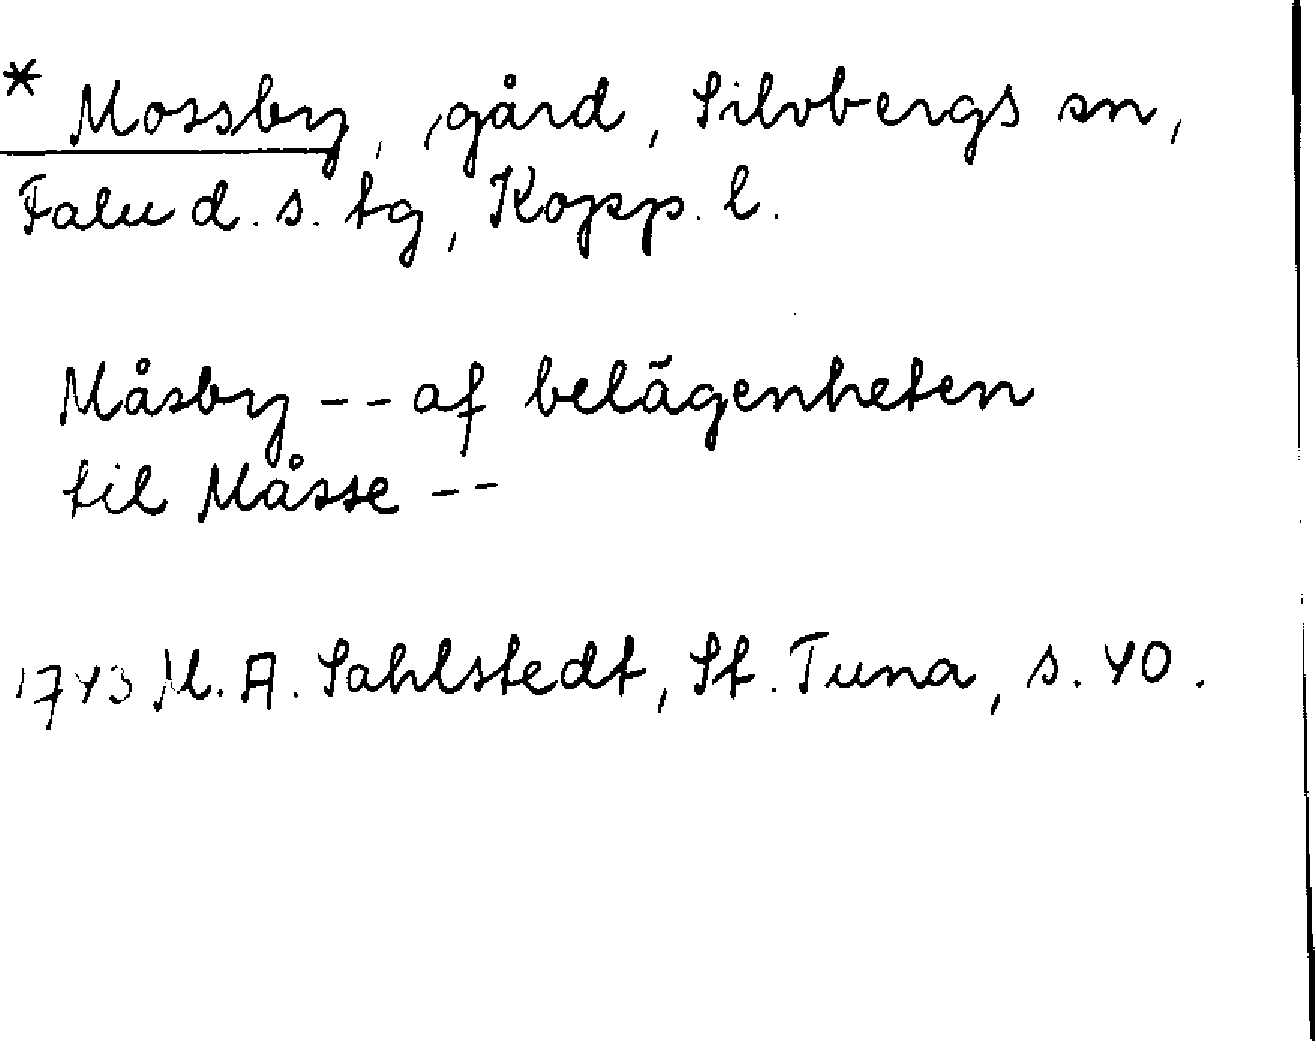 * Mossby, gård, Silvbergs sn,
Falu d. s. tg, Kopp. l.
Måsby -- af belägenheten
til Måsse --
1743 M. A. Sahlstedt, St. Tuna, s. 40.